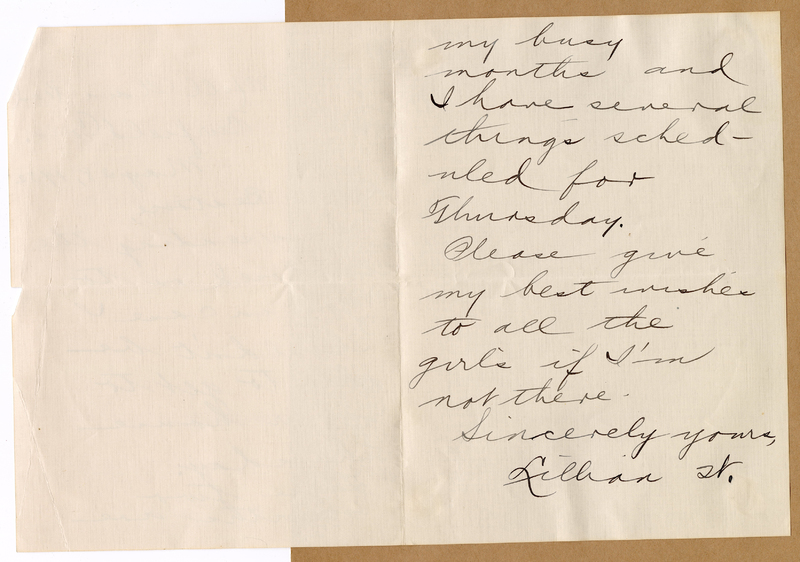 my busy
months and
I have several
things sched-
uled for
Thursday.
Please give
my best wishes
to all the
girls if I'm
not there.
Sincerely yours,
Lillian W.